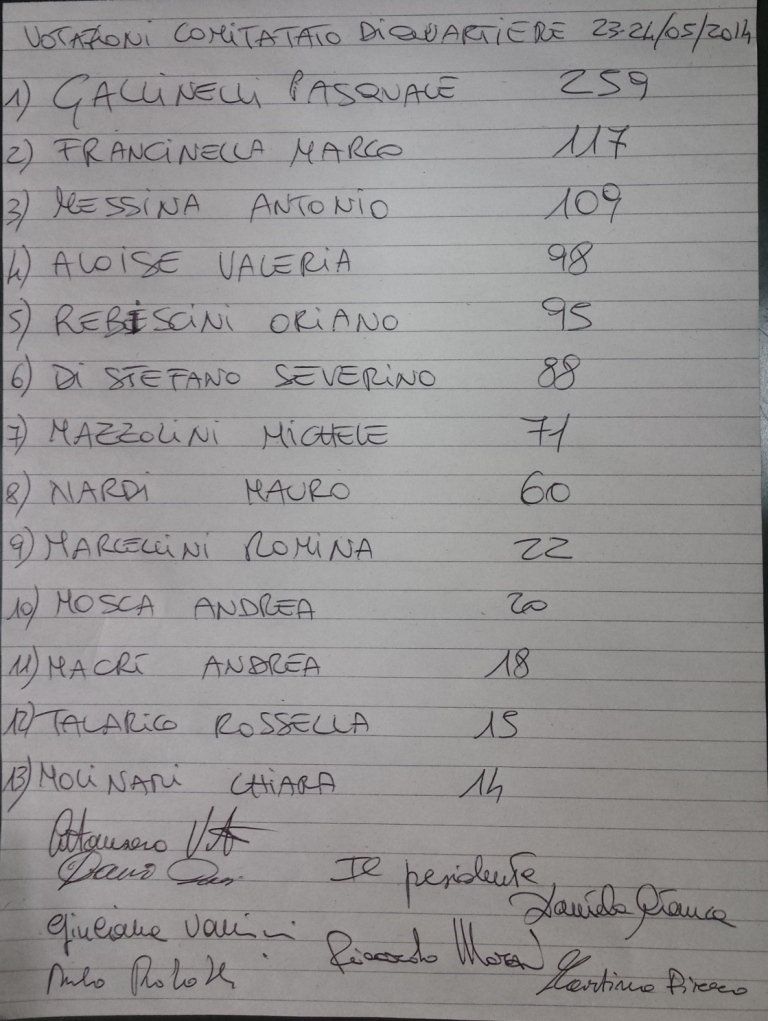 VOTAZIONI COMITATATO DI QUARTIERE 23-24/05/2014
1) GALLINELLI PASQUALE 259
2) FRANCINELLA MARCO 117
3) MESSINA ANTONIO 109
4) ALOISE VALERIA 98
5) REBISCINI ORIANO 95
6) DI STEFANO SEVERINO 88
7) MAZZOLINI MICHELE 71
8) NARDI MAURO 60
9) MARCELLINI ROMINA 22
10) MOSCA ANDREA 20
11) MACRÌ ANDREA 18
12) TALARICO ROSSELLA 15
13) MOLINARI CHIARA 14
Il presidente
Giuliana
Riccardo